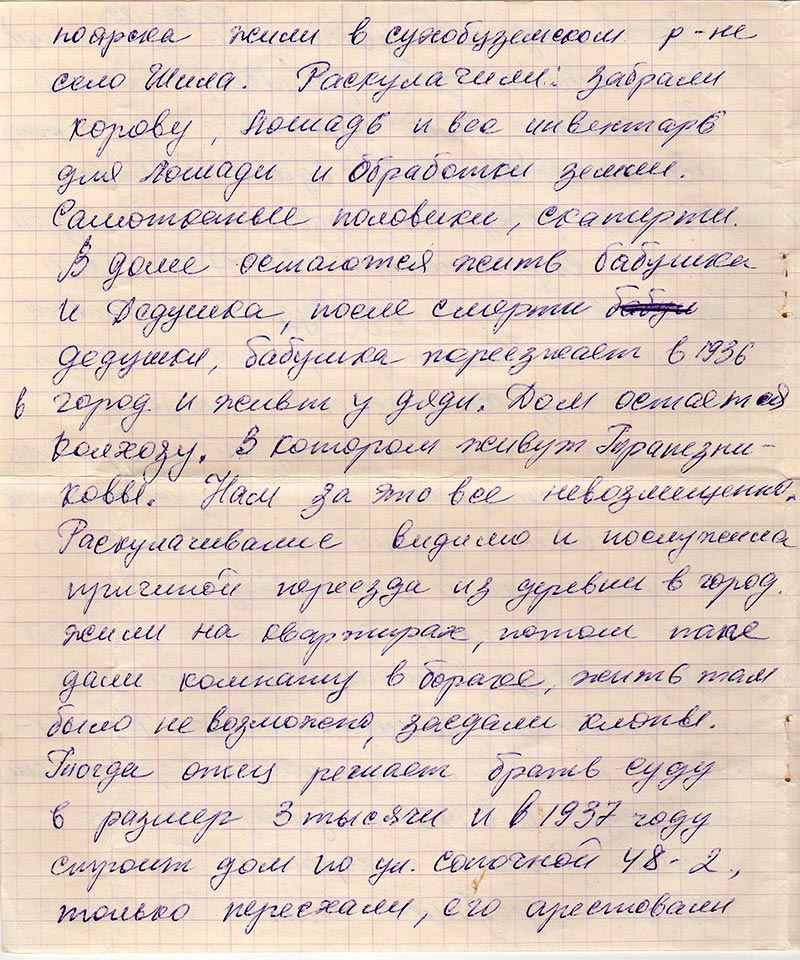 поярска жили в сухобуземском р-не
село Шила. Раскулачили: забрали
корову, лошадь и весь инвентарь
для лошади и обработки земли.
Самотканые половики, скатерти.
В доме остаются жить бабушка
и Дедушка, после смерти бабуш
дедушки, бабушка переезжает в 1936
в город и живет у дяди. Дом остается
колхозу. В котором живут Трапезни-
ковы. Нам за это все невозмещенно.
Раскулачивание видимо и послужила
причиной переезда из деревни в город.
жили на квартирах, потом папе
дали комнату в бараке, жить там
было не возможно, заедали клопы.
Тогда отец решает брать суду
в размер 3 тысячи и в 1937 году
строит дом по ул. Сопочной 48-2,
только переехали, его арестовали